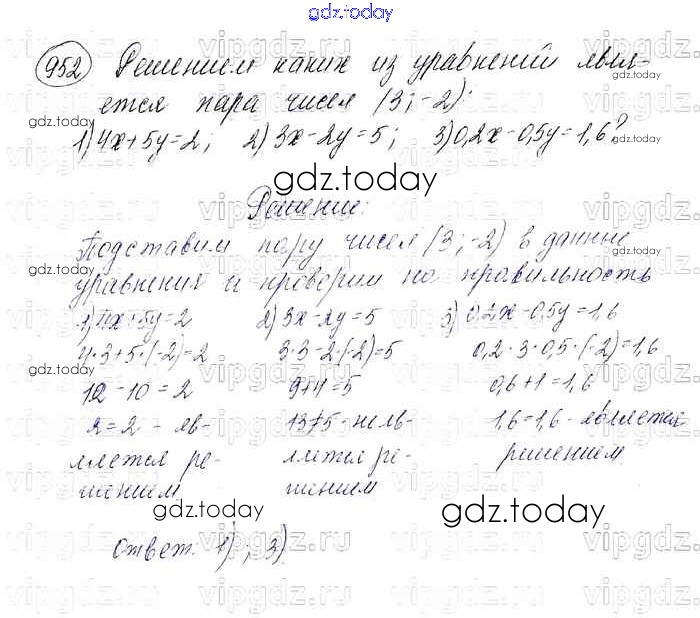 gdz.today
952 Решением каких из уравнений явля-
ется пара чисел (3;-2):
1) 4x+5y=2; 2) 3x-2y=5; 3) 0,2x-0,5y=1,6?
gdz.today
Решение:
Подставим пару чисел (3;-2) в данные
уравнения и проверим на правильность
1) 4x+5y=2 2) 3x-2y=5 3) 0,2x-0,5y=1,6
4·3+5·(-2)=2 3·3-2·(-2)=5 0,2·3-0,5·(-2)=1,6
12-10=2 9+4=5 0,6+1=1,6
2=2 - яв- 13≠5 - не яв- 1,6=1,6 - является
ляется ре- ляется ре- решением
шением шением
gdz.today gdz.today
Ответ: 1); 3)
vipgdz.ru